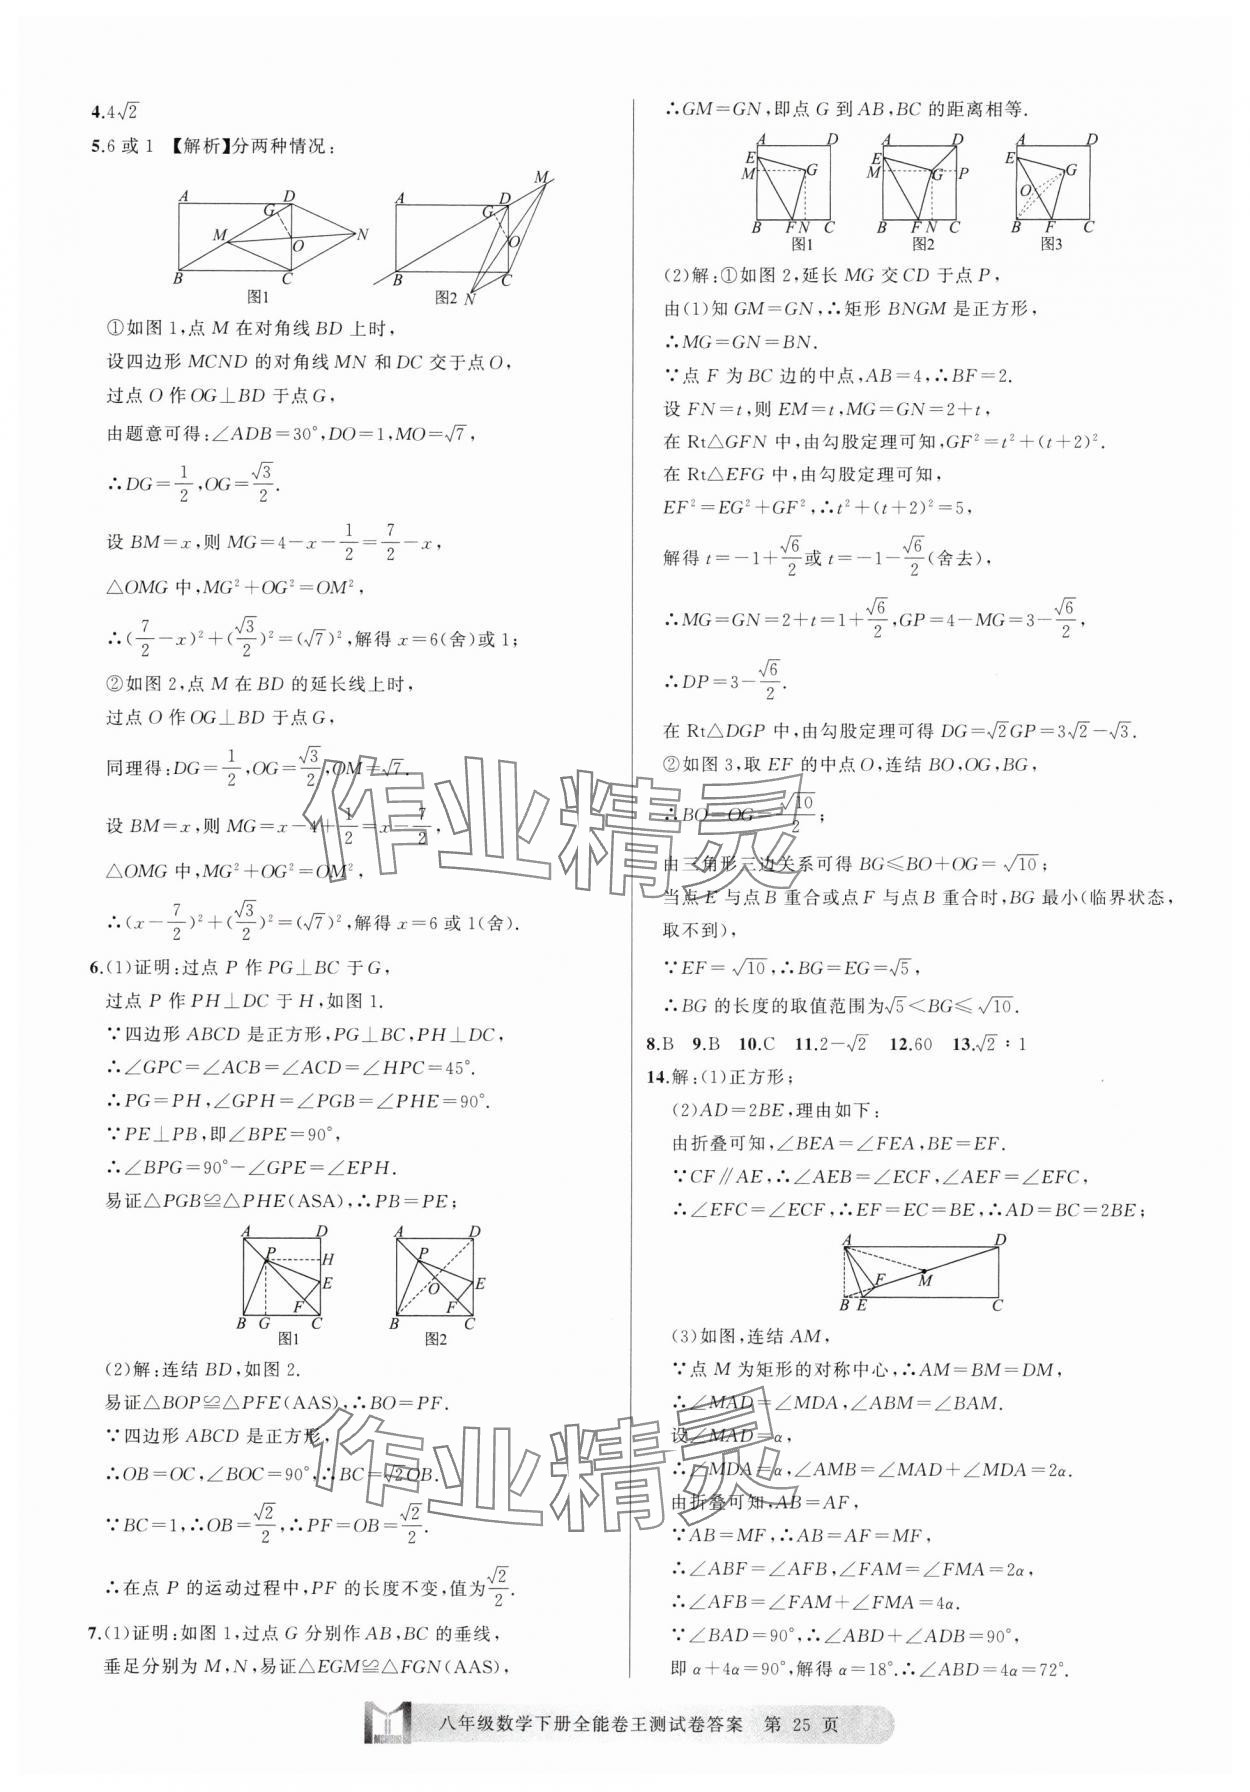 4.4√2
5.6或1 【解析】分两种情况:
A D G M O N B C 图1
A D M G O B C N 图2
①如图1,点M在对角线BD上时,
设四边形MCND的对角线MN和DC交于点O,
过点O作OG⊥BD于点G,
由题意可得:∠ADB=30°,DO=1,MO=√7,
∴DG=1/2,OG=√3/2.
设BM=x,则MG=4-x-1/2=7/2-x,
△OMG中,MG²+OG²=OM²,
∴(7/2-x)²+(√3/2)²=(√7)²,解得x=6(舍)或1;
②如图2,点M在BD的延长线上时,
过点O作OG⊥BD于点G,
同理得:DG=1/2,OG=√3/2,OM=√7.
设BM=x,则MG=x-4+1/2=x-7/2,
△OMG中,MG²+OG²=OM²,
∴(x-7/2)²+(√3/2)²=(√7)²,解得x=6或1(舍).
6.(1)证明:过点P作PG⊥BC于G,
过点P作PH⊥DC于H,如图1.
∵四边形ABCD是正方形,PG⊥BC,PH⊥DC,
∴∠GPC=∠ACB=∠ACD=∠HPC=45°.
∴PG=PH,∠GPH=∠PGB=∠PHE=90°.
∵PE⊥PB,即∠BPE=90°,
∴∠BPG=90°-∠GPE=∠EPH.
易证△PGB≌△PHE(ASA),∴PB=PE;
A D P H E F B G C 图1
A D P E O F B C 图2
(2)解:连结BD,如图2.
易证△BOP≌△PFE(AAS),∴BO=PF.
∵四边形ABCD是正方形,
∴OB=OC,∠BOC=90°,∴BC=√2OB.
∵BC=1,∴OB=√2/2,∴PF=OB=√2/2.
∴在点P的运动过程中,PF的长度不变,值为√2/2.
7.(1)证明:如图1,过点G分别作AB,BC的垂线,
垂足分别为M,N,易证△EGM≌△FGN(AAS),
∴GM=GN,即点G到AB,BC的距离相等.
A D E M G B F N C 图1
A D E M G P B F N C 图2
A D E G O B F C 图3
(2)解:①如图2,延长MG交CD于点P,
由(1)知GM=GN,∴矩形BNGM是正方形,
∴MG=GN=BN.
∵点F为BC边的中点,AB=4,∴BF=2.
设FN=t,则EM=t,MG=GN=2+t,
在Rt△GFN中,由勾股定理可知,GF²=t²+(t+2)².
在Rt△EFG中,由勾股定理可知,
EF²=EG²+GF²,∴t²+(t+2)²=5,
解得t=-1+√6/2或t=-1-√6/2(舍去),
∴MG=GN=2+t=1+√6/2,GP=4-MG=3-√6/2,
∴DP=3-√6/2.
在Rt△DGP中,由勾股定理可得DG=√2GP=3√2-√3.
②如图3,取EF的中点O,连结BO,OG,BG,
∴BO=OG=√10/2;
由三角形三边关系可得BG≤BO+OG=√10;
当点E与点B重合或点F与点B重合时,BG最小(临界状态,
取不到),
∵EF=√10,∴BG=EG=√5,
∴BG的长度的取值范围为√5<BG≤√10.
8.B 9.B 10.C 11.2-√2 12.60 13.√2∶1
14.解:(1)正方形;
(2)AD=2BE,理由如下:
由折叠可知,∠BEA=∠FEA,BE=EF.
∵CF∥AE,∴∠AEB=∠ECF,∠AEF=∠EFC,
∴∠EFC=∠ECF,∴EF=EC=BE,∴AD=BC=2BE;
A D F M B E C
(3)如图,连结AM,
∵点M为矩形的对称中心,∴AM=BM=DM,
∴∠MAD=∠MDA,∠ABM=∠BAM.
设∠MAD=α,
∴∠MDA=α,∠AMB=∠MAD+∠MDA=2α.
由折叠可知,AB=AF,
∵AB=MF,∴AB=AF=MF,
∴∠ABF=∠AFB,∠FAM=∠FMA=2α,
∴∠AFB=∠FAM+∠FMA=4α.
∵∠BAD=90°,∴∠ABD+∠ADB=90°,
即α+4α=90°,解得α=18°.∴∠ABD=4α=72°.
作业精灵
作业精灵
八年级数学下册全能卷王测试卷答案 第 25 页